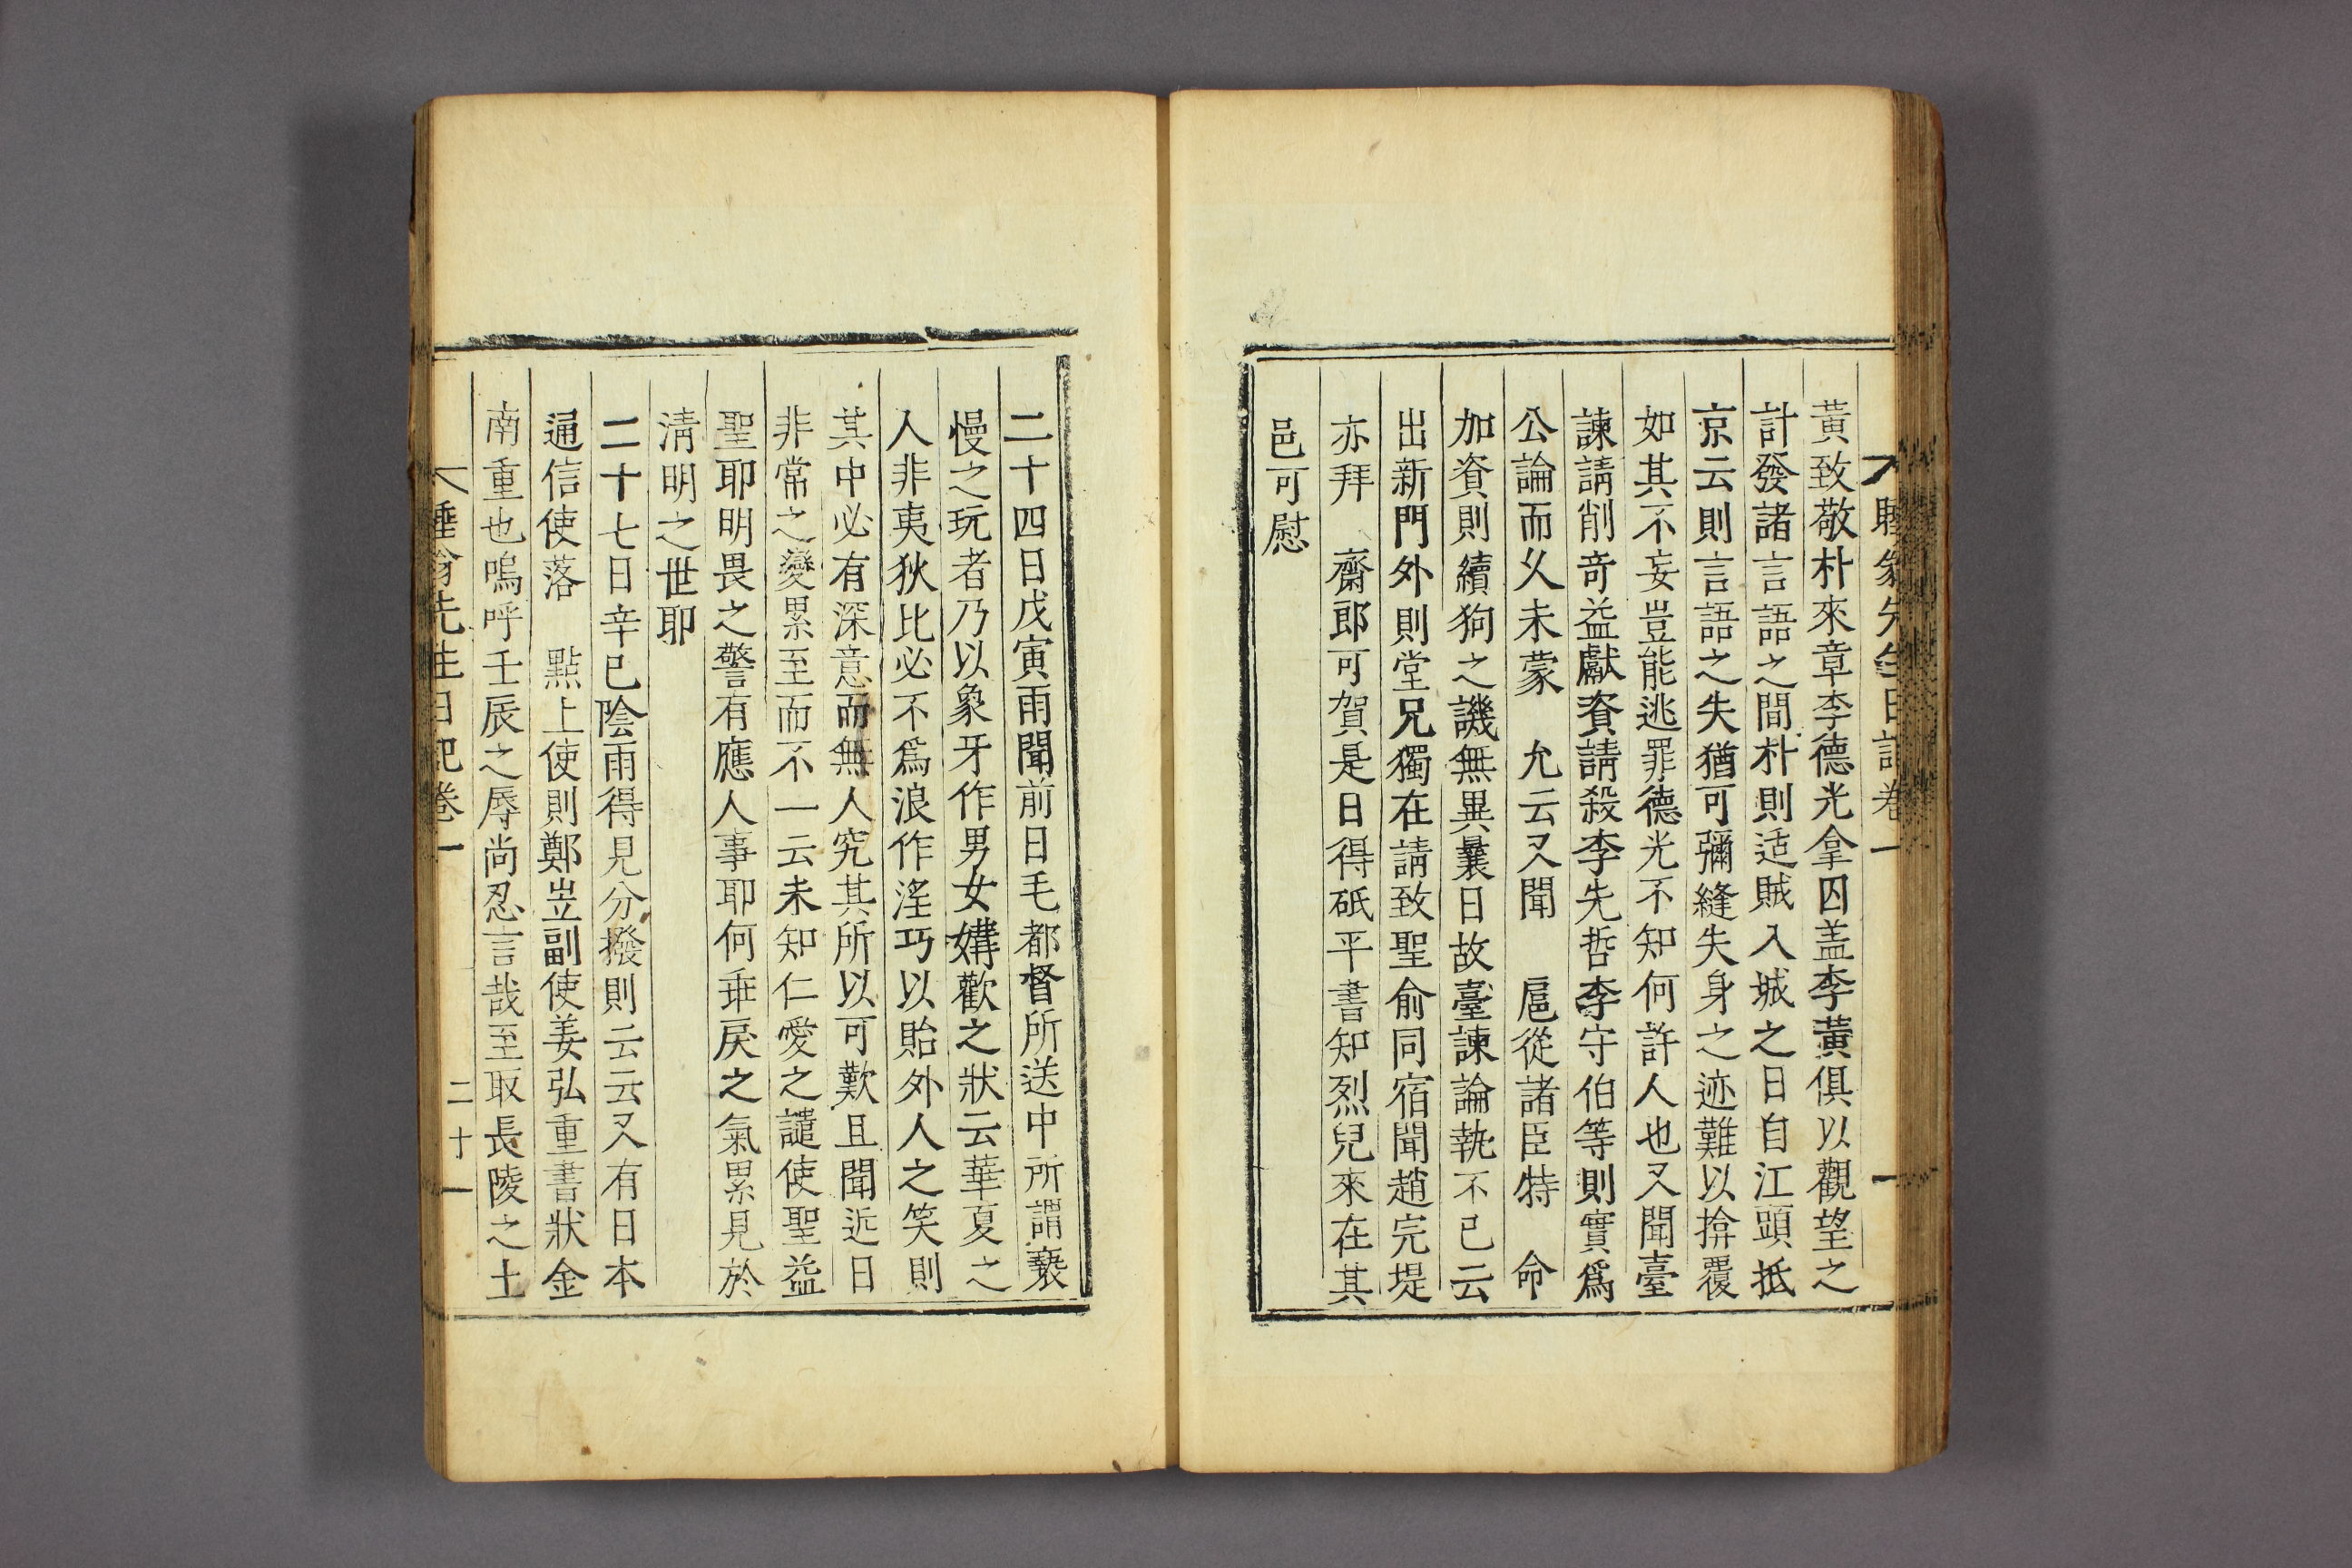 黃致敬朴來章李德光拿囚盖李黃俱以觀望之
計發諸言語之間朴則适賊入城之日自江頭抵
京云則言語之失猶可彌縫失身之迹難以揜覆
如其不妄豈能逃罪德光不知何許人也又聞臺
諫請削奇益獻資請殺李先哲李守伯等則實爲
公論而久未蒙 允云又聞 扈從諸臣特 命
加資則續狗之譏無異曩日故臺諫論執不已云
出新門外則堂兄獨在請致聖俞同宿聞趙完堤
亦拜 齋郎可賀是日得砥平書知烈兒來在其
邑可慰
二十四日戊寅雨聞前日毛都督所送中所謂褻
慢之玩者乃以象牙作男女媾歡之狀云華夏之
人非夷狄比必不爲浪作淫巧以貽外人之笑則
其中必有深意而無人究其所以可歎且聞近日
非常之變累至而不一云未知仁愛之譴使聖益
聖耶明畏之警有應人事耶何乖戾之氣累見於
淸明之世耶
二十七日辛巳陰雨得見分撥則云云又有日本
通信使落 點上使則鄭岦副使姜弘重書狀金
南重也嗚呼壬辰之辱尚忍言哉至取長陵之土
睡翁先生日記卷一
二十一